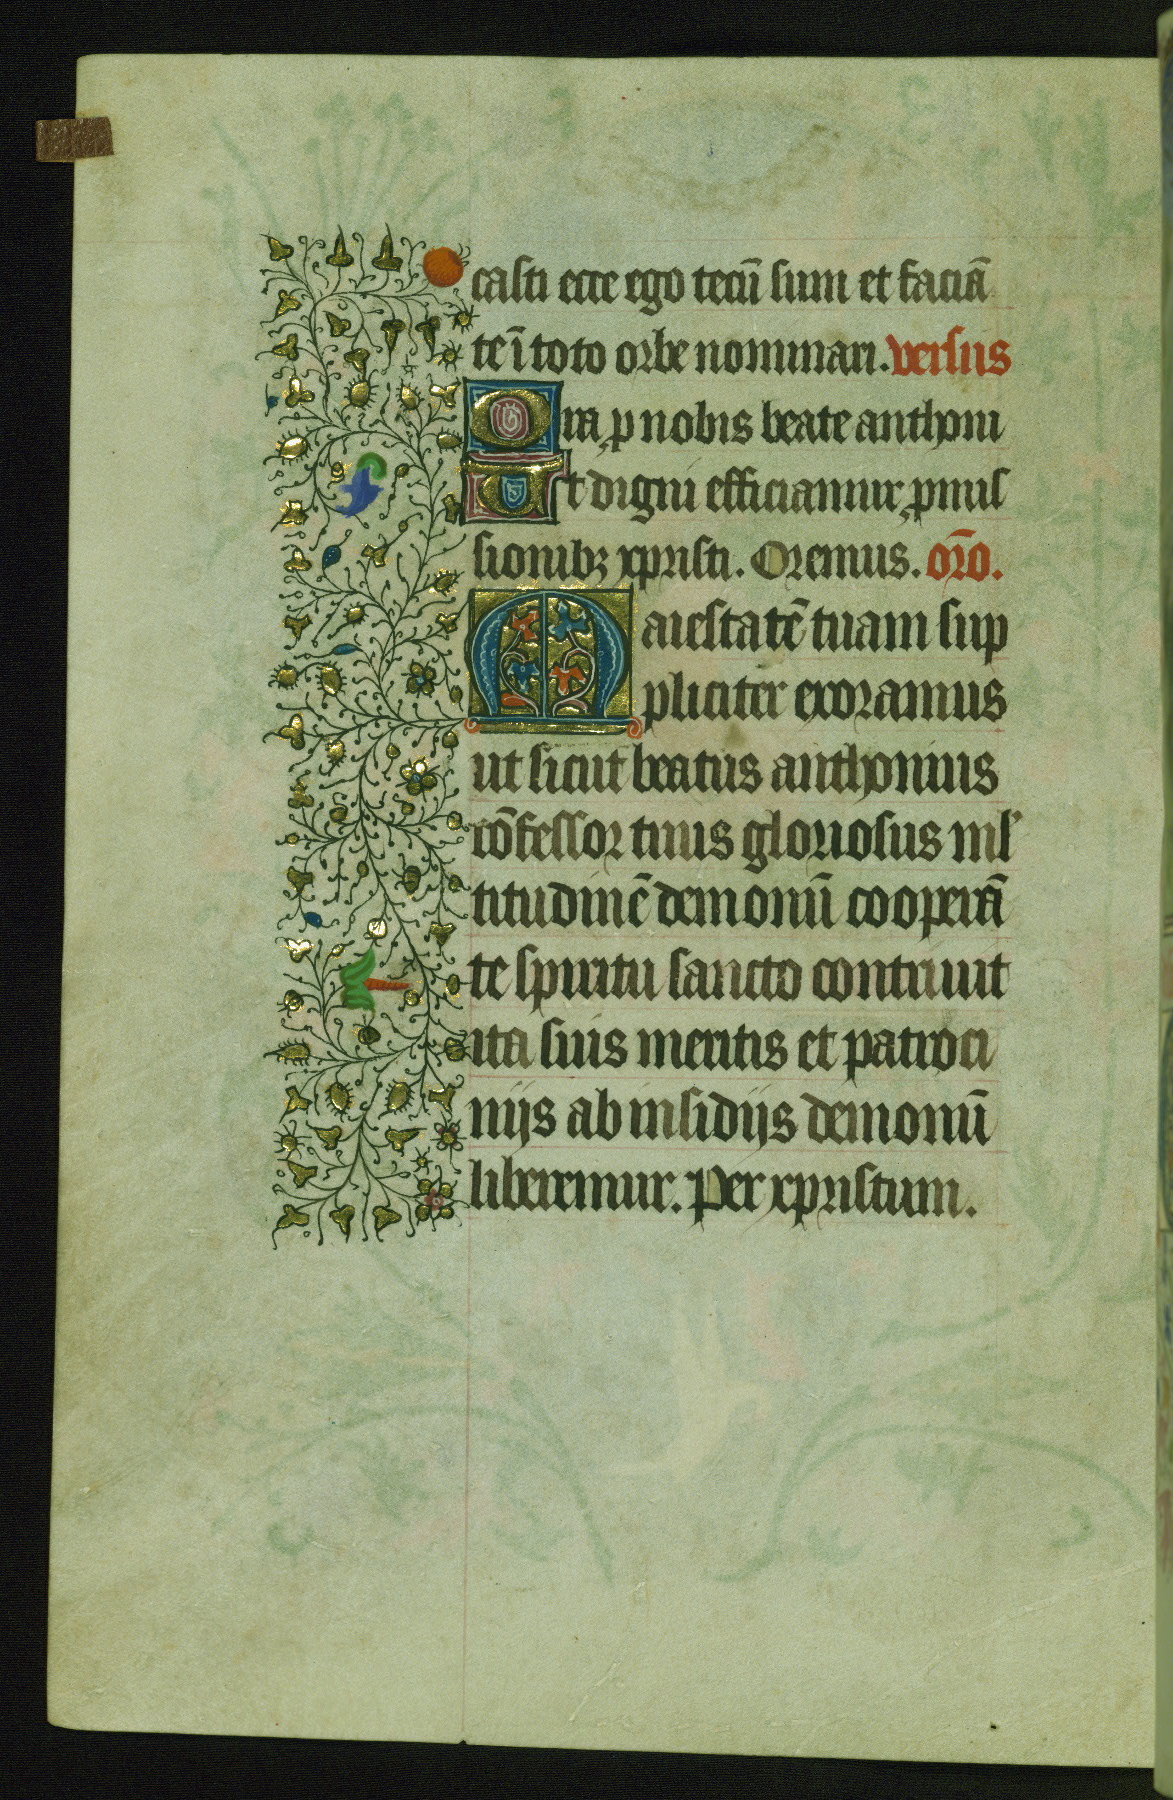 casti ecce ego tecū sum et faciā
te ī toto orbe nominari. versus
Ora p nobis beate anthoni
Ut digni efficiamur pmis
sionibꝫ xpristi. Oremus. orō.
Maiestatē tuam sup
pliciter exoramus
ut sicut beatus anthonius
cōfessor tuus gloriosus mĺ
titudinē demonū cooperā
te spiritu sancto contriuit
ita suis meritis et patroci
nijs ab insidijs demonū
liberemur. Per xpristum.